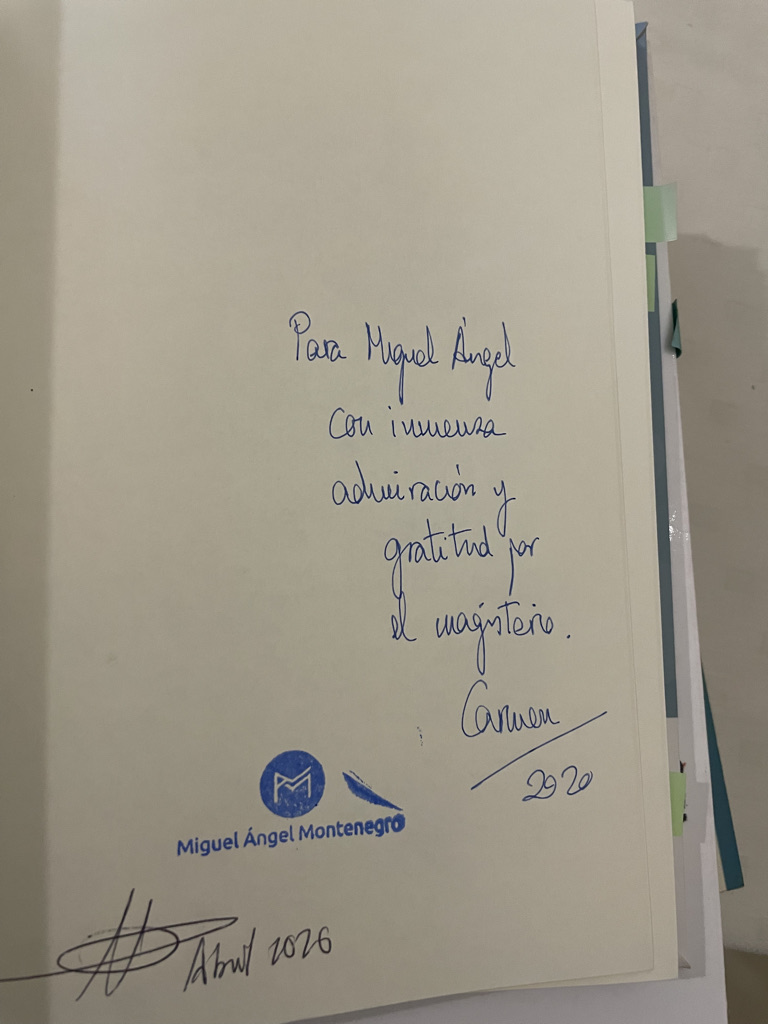 Para Miguel Ángel
con inmensa
admiración y
gratitud por
el magisterio.
Carmen
2020
Miguel Ángel Montenegro
Abril 2026